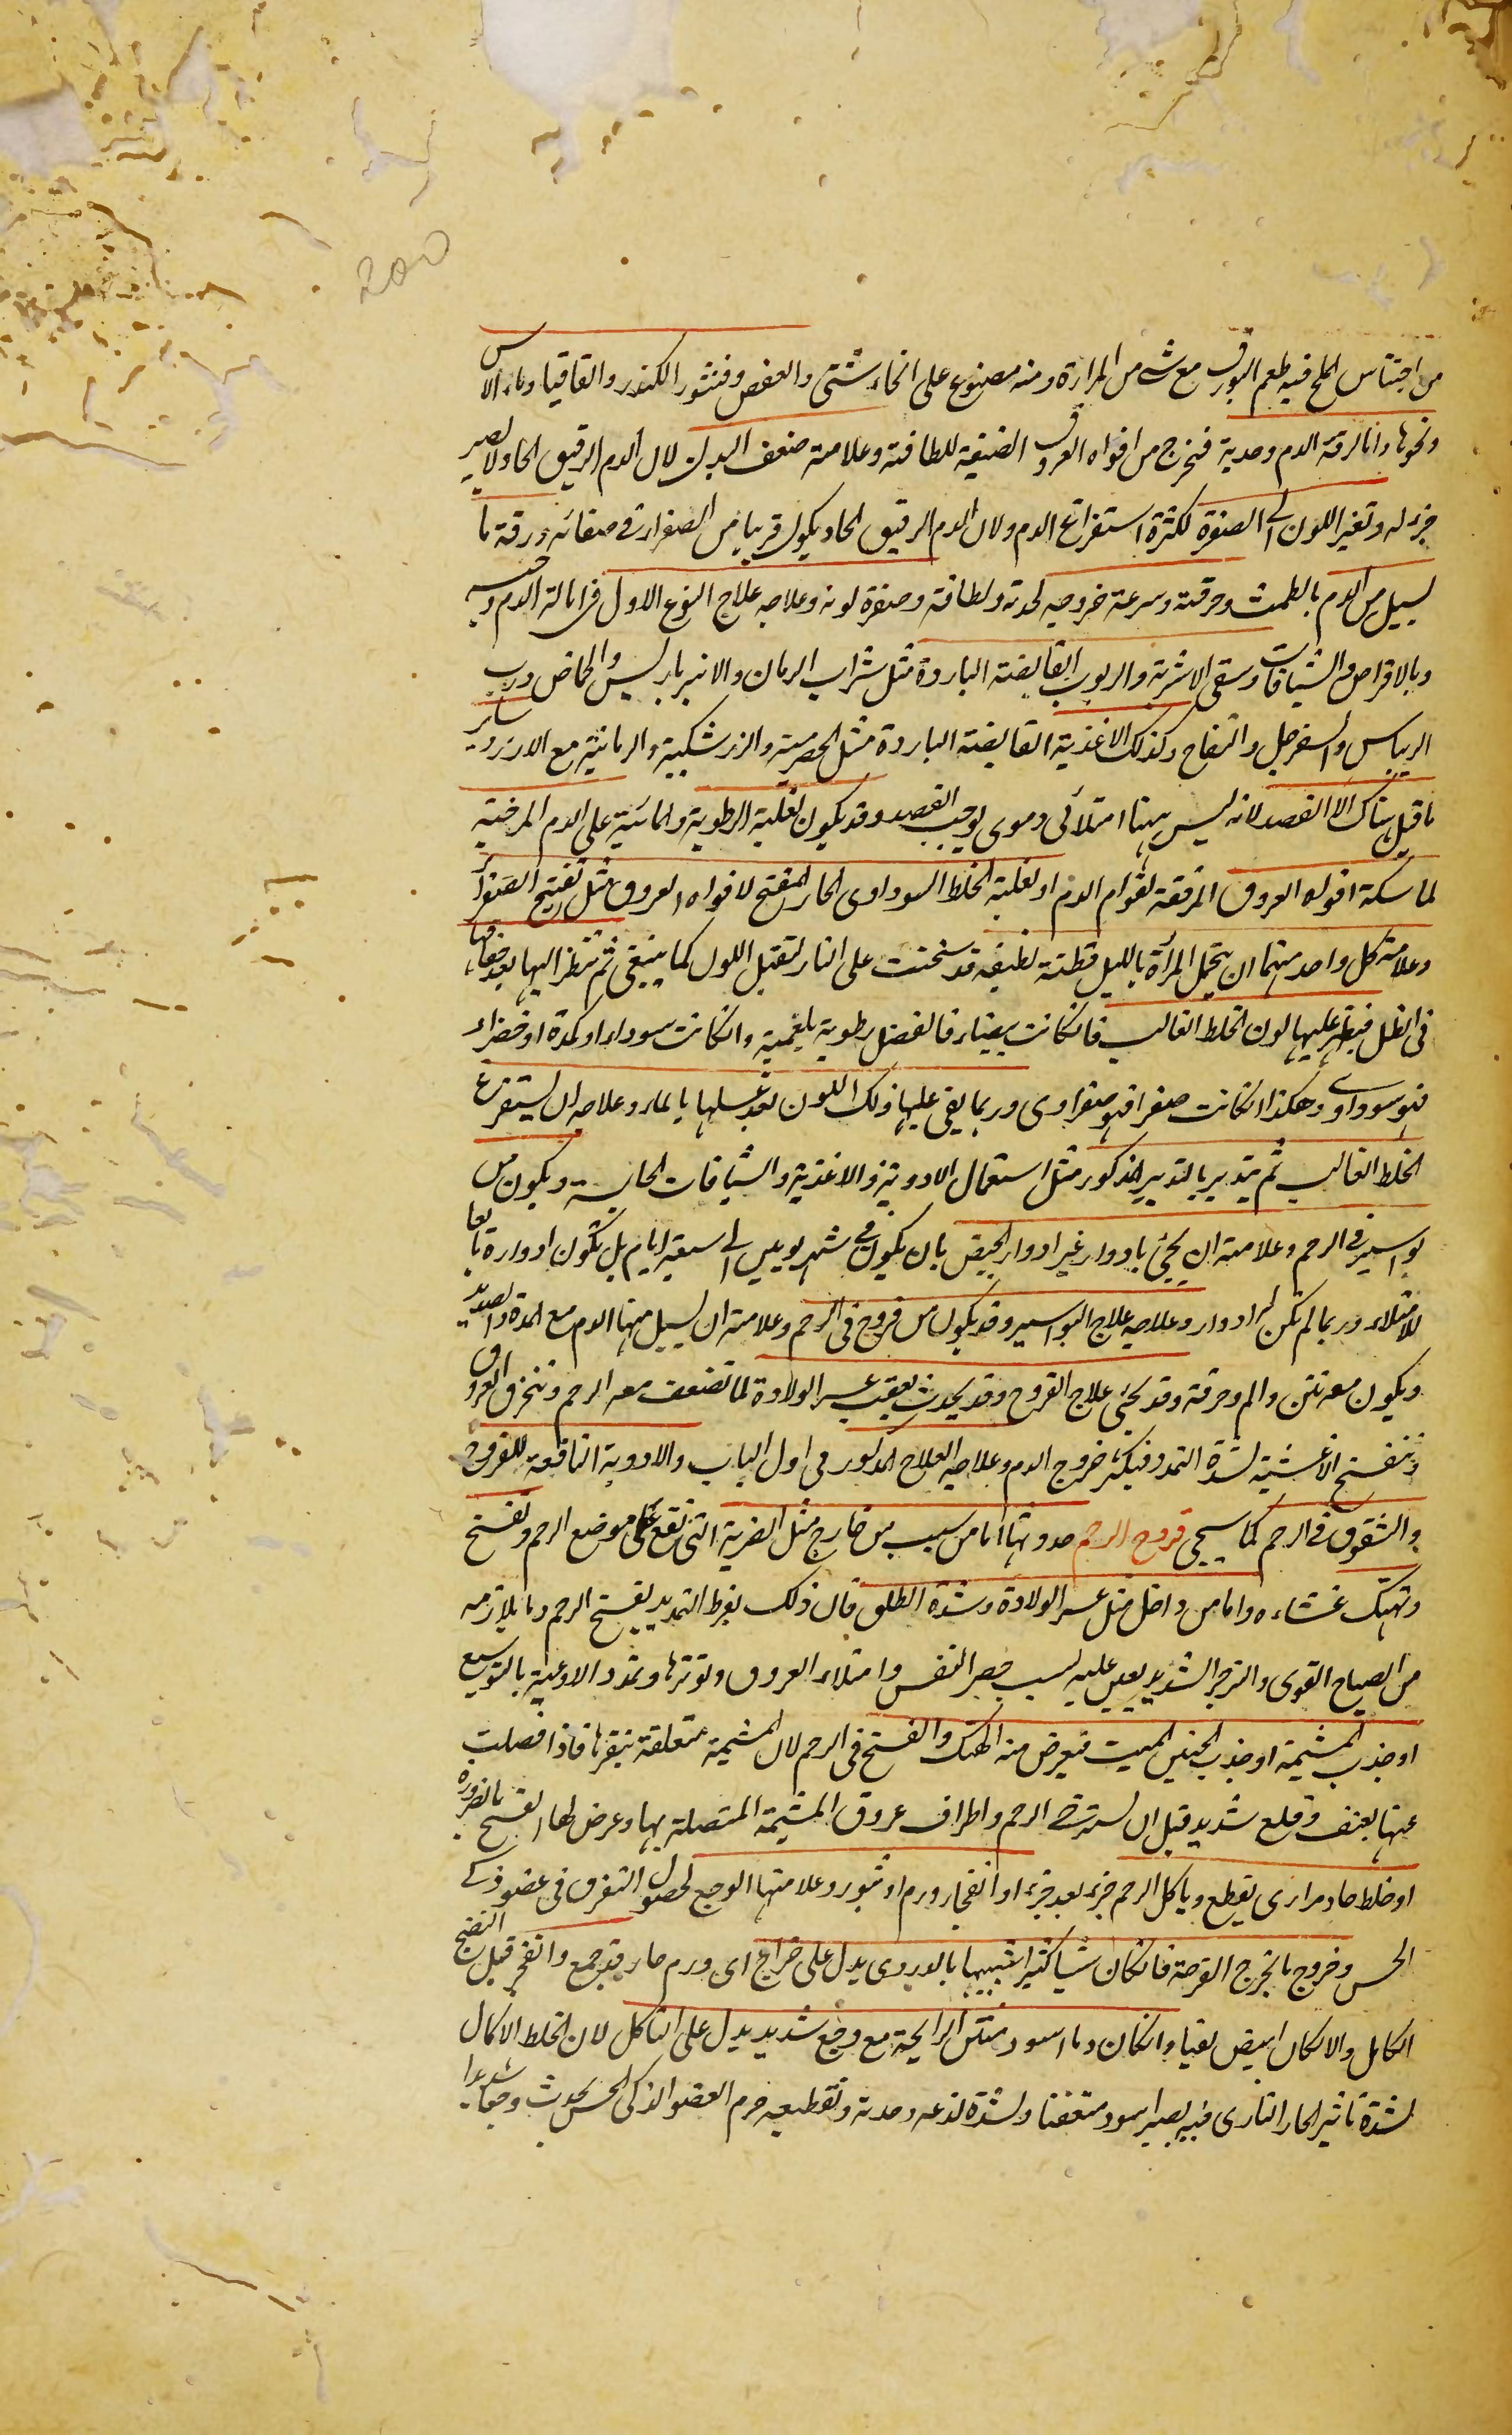 200
من اجناس الملح فيه طعم البورق مع شي من المرارة ومنه مصنوع على انحاء شتى والعفص وقشور الكندر والقاقيا وماء الاس
ونحوها واما لرقة الدم وحدته فتخرج من افواه العروق الضيقة للطافته وعلامته ضعف البدن لان الدم الرقيق الحاد لا يصير
جزء له وتغير اللون الى الصفرة لكثرة استفراغ الدم ولان الدم الرقيق الحاد يكون قريبا من الصفراء في صفائه ورقة ما
يسيل من الدم بالطمث وحرقته وسرعة خروجه لحدته ولطافته وصفرة لونه وعلاجه علاج النوع الاول في امالة الدم وحبسه
وبالاقراص والشيافات وسقى الاشربة والربوب القابضة الباردة مثل شراب الرمان والانبرباريس والحماض ورب
الريباس والسفرجل والتفاح وكذلك الاغذية القابضة الباردة مثل الحصرمية والزرشكية والرمانية مع الارز وسائر
ما قيل هناك الا الفصد لانه ليس ههنا امتلائى دموى يوجب الفصد وقد يكون لغلبة الرطوبة والمائية على الدم المرخية
لماسكة افواه العروق المرققة لقوام الدم او لغلبة الخلط السوداوى الحار المفتح لافواه العروق مثل تفتيح الصفرا
وعلامة كل واحد منهما ان يحتمل المرأة بالليل قطنة نظيفة قد سخنت على النار لتقبل اللون كما ينبغى ثم تنظر اليها بعد جفافها
فى الظل فيظهر عليها لون الخلط الغالب فانكانت بيضاء فالفضل رطوبة بلغمية وانكانت سوداء او كمدة او خضراء
فهو سوداوى وهكذا انكانت صفرا فهو صفراوى وربما بقى عليها ذلك اللون بعد غسلها بالماء وعلاجه ان يستفرغ
الخلط الغالب ثم يتدبر بالتدبير المذكور مثل استعمال الادوية والاغذية والشيافات الحابسة ويكون من
بواسير فى الرحم وعلامته ان يجئ بادوار غير ادوار الحيض بان يكون فى شهر يومين الى سبعة ايام بل تكون ادواره تابعا
للامتلاء وربما لم تكن له ادوار وعلاجه علاج البواسير وقد يكون من قروح فى الرحم وعلامته ان يسيل منها الدم مع المدة والصديد
ويكون معه نتن والم وحرقة وقد يجئ علاج القروح وقد يحدث بعقيب عسر الولادة لما تضعف معه الرحم وتنخرق العروق
وتنفسخ الاغشية لشدة التمدد فيكثر خروج الدم وعلاجه العلاج المذكور فى اول الباب والادوية النافعة للقروح
والشقوق فى الرحم كما سيجى قروح الرحم حدوثها اما من سبب من خارج مثل الضربة التى تقع على موضع الرحم وتفسخ
وتهتك غشاءه واما من داخل مثل عسر الولادة وشدة الطلق فان ذلك بفرط التمديد يفسخ الرحم وما يلازمه
من الصياح القوى والتزحر الشديد يعين عليه بسبب حصر النفس وامتلاء العروق وتوترها وتمدد الاوعية بالتوسيع
او جذب المشيمة او جذب الجنين الميت فيعرض منه الهتك والفسخ فى الرحم لان المشيمة متعلقة بنقرها فاذا فصلت
عنها بعنف وقلع شديد قبل ان يسترخى الرحم واطراف عروق المشيمة المتصلة بها وعرض لها الفسخ بالضرورة
او خلط حاد مرارى يقطع وياكل الرحم جزء بعد جزء او انفجار ورم او بثور وعلامتها الوجع لحصول التفرق فى عضو ذكى
الحس وخروج ما يخرج القرحة فانكان شيا كثيرا شبيها بالدردى يدل على خراج اى ورم حار قد جمع وانفجر قبل النضج
الكامل والا لكان ابيض نقيا وانكان دما اسود منتن الرايحة مع وجع شديد يدل على التاكل لان الخلط الاكال
لشدة تاثير الحار النارى فيه يصير اسود متعفنا ولشدة لذعه وحدته وتقطيعه جرم العضو الذكى الحس يحدث وجعا شديدا